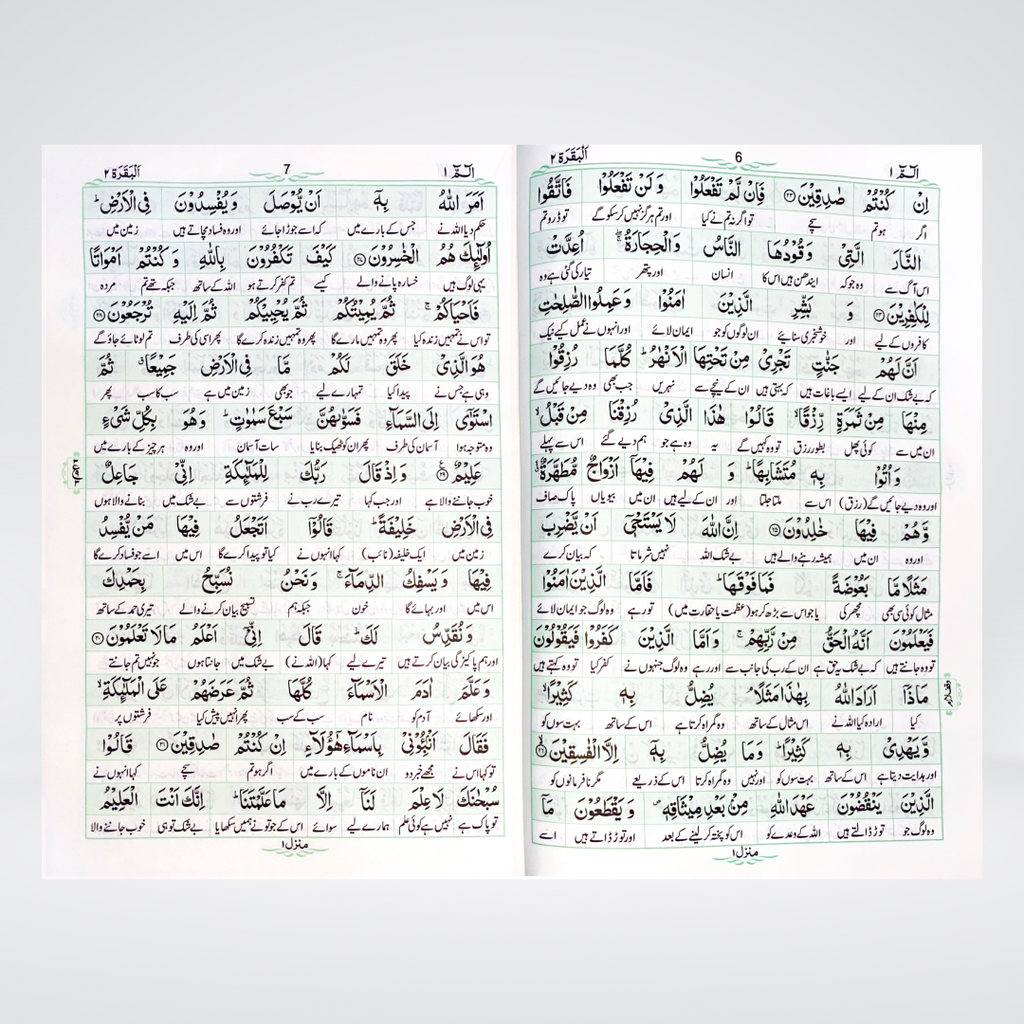 الٓمّٓ ۱ 6 اَلْبَقَرَة ۲
اِنْ كُنْتُمْ صٰدِقِيْنَ ۲۳ فَاِنْ لَّمْ تَفْعَلُوْا وَ لَنْ تَفْعَلُوْا فَاتَّقُوا
اگر ہو تم سچے تو اگر نہ تم نے کیا اور تم ہرگز نہیں کر سکو گے تو ڈرو تم
النَّارَ الَّتِیْ وَقُوْدُهَا النَّاسُ وَالْحِجَارَةُ ۖۚ اُعِدَّتْ
اس آگ سے وہ جو کہ ایندھن ہیں اس کا انسان اور پتھر تیار کی گئی ہے وہ
لِلْكٰفِرِيْنَ ۲۴ وَ بَشِّرِ الَّذِيْنَ اٰمَنُوْا وَعَمِلُوا الصّٰلِحٰتِ
کافروں کے لیے اور خوشخبری سنائیے ان لوگوں کو جو ایمان لائے اور انہوں نے عمل کیے نیک
اَنَّ لَهُمْ جَنّٰتٍ تَجْرِیْ مِنْ تَحْتِهَا الْاَنْهٰرُ ؕ كُلَّمَا رُزِقُوْا
کہ بے شک ان کے لیے ایسے باغات ہیں کہ بہتی ہیں ان کے نیچے سے نہریں جب بھی وہ دیے جائیں گے
مِنْهَا مِنْ ثَمَرَةٍ رِّزْقًا ۙ قَالُوْا هٰذَا الَّذِیْ رُزِقْنَا مِنْ قَبْلُ ۙ
ان میں سے کوئی پھل بطور رزق تو وہ کہیں گے یہ وہ ہے جو ہم دیے گئے اس سے پہلے
وَاُتُوْا بِهٖ مُتَشَابِهًا ؕ وَ لَهُمْ فِيْهَآ اَزْوَاجٌ مُّطَهَّرَةٌ ۙ
اور وہ دیے جائیں گے (رزق) اس سے ملتا جلتا اور ان کے لیے ہیں ان میں بیویاں پاک صاف
وَّهُمْ فِيْهَا خٰلِدُوْنَ ۲۵ اِنَّ اللّٰهَ لَا يَسْتَحْیٖٓ اَنْ يَّضْرِبَ
اور وہ ان میں ہمیشہ رہنے والے ہیں بے شک اللہ نہیں شرماتا کہ بیان کرے
مَثَلًا مَّا بَعُوْضَةً فَمَا فَوْقَهَا ؕ فَاَمَّا الَّذِيْنَ اٰمَنُوْا
مثال کوئی سی بھی مچھر کی یا جو اس سے بڑھ کر ہو (عظمت یا حقارت میں) تو رہے وہ لوگ جو ایمان لائے
فَيَعْلَمُوْنَ اَنَّهُ الْحَقُّ مِنْ رَّبِّهِمْ ۚ وَاَمَّا الَّذِيْنَ كَفَرُوْا فَيَقُوْلُوْنَ
تو وہ جانتے ہیں کہ بے شک یہ حق ہے ان کے رب کی جانب سے اور رہے وہ لوگ جنہوں نے کفر کیا تو وہ کہتے ہیں
مَاذَآ اَرَادَ اللّٰهُ بِهٰذَا مَثَلًا ۘ يُضِلُّ بِهٖ كَثِيْرًا ۙ
کیا ارادہ کیا اللہ نے اس مثال کے ساتھ وہ گمراہ کرتا ہے اس کے ساتھ بہت سوں کو
وَّيَهْدِیْ بِهٖ كَثِيْرًا ؕ وَمَا يُضِلُّ بِهٖٓ اِلَّا الْفٰسِقِيْنَ ۲۶ ۙ
اور ہدایت دیتا ہے اس کے ساتھ بہت سوں کو اور نہیں وہ گمراہ کرتا اس کے ذریعے مگر نافرمانوں کو
الَّذِيْنَ يَنْقُضُوْنَ عَهْدَ اللّٰهِ مِنْۢ بَعْدِ مِيْثَاقِهٖ ۪ وَ يَقْطَعُوْنَ مَآ
وہ لوگ جو توڑ ڈالتے ہیں اللہ کے وعدے کو اس کو پختہ کر لینے کے بعد اور توڑ ڈالتے ہیں اسے
منزل ۱
الٓمّٓ ۱ 7 اَلْبَقَرَة ۲
اَمَرَ اللّٰهُ بِهٖٓ اَنْ يُّوْصَلَ وَ يُفْسِدُوْنَ فِی الْاَرْضِ ؕ
حکم دیا اللہ نے جس کے بارے میں کہ اسے جوڑا جائے اور وہ فساد مچاتے ہیں زمین میں
اُولٰٓئِكَ هُمُ الْخٰسِرُوْنَ ۲۷ كَيْفَ تَكْفُرُوْنَ بِاللّٰهِ وَ كُنْتُمْ اَمْوَاتًا
یہی لوگ ہیں خسارہ پانے والے کیسے تم کفر کرتے ہو اللہ کے ساتھ جبکہ تھے تم مردہ
فَاَحْيَاكُمْ ۚ ثُمَّ يُمِيْتُكُمْ ثُمَّ يُحْيِيْكُمْ ثُمَّ اِلَيْهِ تُرْجَعُوْنَ ۲۸
تو اس نے تمہیں زندہ کیا پھر وہ تمہیں مارے گا پھر وہ تمہیں زندہ کرے گا پھر اسی کی طرف تم لوٹائے جاؤ گے
هُوَ الَّذِیْ خَلَقَ لَكُمْ مَّا فِی الْاَرْضِ جَمِيْعًا ۗ ثُمَّ
وہی ہے جس نے پیدا کیا تمہارے لیے جو بھی زمین میں ہے سب کا سب پھر
اسْتَوٰٓی اِلَی السَّمَآءِ فَسَوّٰىهُنَّ سَبْعَ سَمٰوٰتٍ ؕ وَهُوَ بِكُلِّ شَیْءٍ
وہ متوجہ ہوا آسمان کی طرف پھر ان کو ٹھیک بنایا سات آسمان اور وہ ہر چیز کے بارے میں
عَلِيْمٌ ۲۹ وَ اِذْ قَالَ رَبُّكَ لِلْمَلٰٓئِكَةِ اِنِّیْ جَاعِلٌ
خوب جاننے والا ہے اور جب کہا تیرے رب نے فرشتوں سے بے شک میں بنانے والا ہوں
فِی الْاَرْضِ خَلِيْفَةً ؕ قَالُوْٓا اَتَجْعَلُ فِيْهَا مَنْ يُّفْسِدُ
زمین میں ایک خلیفہ (نائب) کہا انہوں نے کیا تو پیدا کرے گا اس میں اسے جو فساد کرے گا
فِيْهَا وَ يَسْفِكُ الدِّمَآءَ ۚ وَنَحْنُ نُسَبِّحُ بِحَمْدِكَ
اس میں اور بہائے گا خون جبکہ ہم تسبیح بیان کرنے والے تیری حمد کے ساتھ
وَ نُقَدِّسُ لَكَ ؕ قَالَ اِنِّیْٓ اَعْلَمُ مَا لَا تَعْلَمُوْنَ ۳۰
اور ہم پاکیزگی بیان کرتے ہیں تیرے لیے کہا (اللہ نے) بے شک میں جانتا ہوں جو نہیں تم جانتے
وَ عَلَّمَ اٰدَمَ الْاَسْمَآءَ كُلَّهَا ثُمَّ عَرَضَهُمْ عَلَی الْمَلٰٓئِكَةِ ۙ
اور سکھائے آدم کو نام سب کے سب پھر انہیں پیش کیا فرشتوں پر
فَقَالَ اَنْۢبِـُٔوْنِیْ بِاَسْمَآءِ هٰٓؤُلَآءِ اِنْ كُنْتُمْ صٰدِقِيْنَ ۳۱ قَالُوْا
تو کہا اس نے مجھے خبر دو ان ناموں کے بارے میں اگر ہو تم سچے کہا انہوں نے
سُبْحٰنَكَ لَا عِلْمَ لَنَآ اِلَّا مَا عَلَّمْتَنَا ؕ اِنَّكَ اَنْتَ الْعَلِيْمُ
تو پاک ہے نہیں ہے کوئی علم ہمارے لیے سوائے اس کے جو تو نے ہمیں سکھایا بے شک تو ہی خوب جاننے والا
منزل ۱